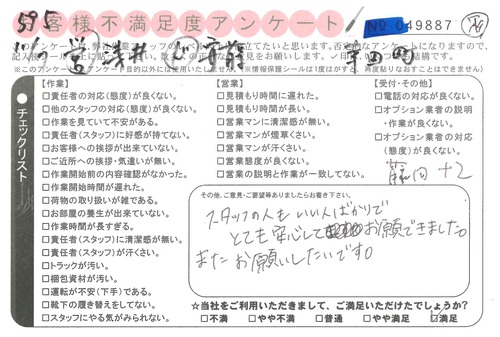 595
お客様不満足度アンケート
No 049887
営 浅井
【作業】
□責任者の対応(態度)が良くない。
□他のスタッフの対応(態度)が良くない。
□作業を見ていて不安がある。
□責任者(スタッフ)に好感が持てない。
□お客様への挨拶が出来ていない。
□ご近所への挨拶・気遣いが無い。
□作業開始前の内容確認がなかった。
□作業開始時間が遅れた。
□荷物の取り扱いが雑である。
□お部屋の養生が出来ていない。
□作業時間が長すぎる。
□責任者(スタッフ)に清潔感が無い。
□責任者(スタッフ)が汗くさい。
□トラックが汚い。
□梱包資材が汚い。
□運転が不安(下手)である。
□靴下の履き替えをしてない。
□スタッフにやる気がみられない。
チェックリスト
【営業】
□見積もり時間に遅れた。
□見積もり時間が長い。
□営業マンに清潔感が無い。
□営業マンが煙草くさい。
□営業マンが汗くさい。
□営業態度が良くない。
□営業の説明と作業が一致してない。
【受付・その他】
□電話の対応が良くない。
□オプション業者の説明
・作業が良くない。
□オプション業者の対応
(態度)が良くない。
その他、ご意見・ご要望等ありましたらお書き下さい。
スタッフの人もいい人ばかりで
とても安心してお願できました。
またお願いしたいです。
☆当社をご利用いただきまして、ご満足いただけたでしょうか?
□不満 □やや不満 □普通 □やや満足 □満足